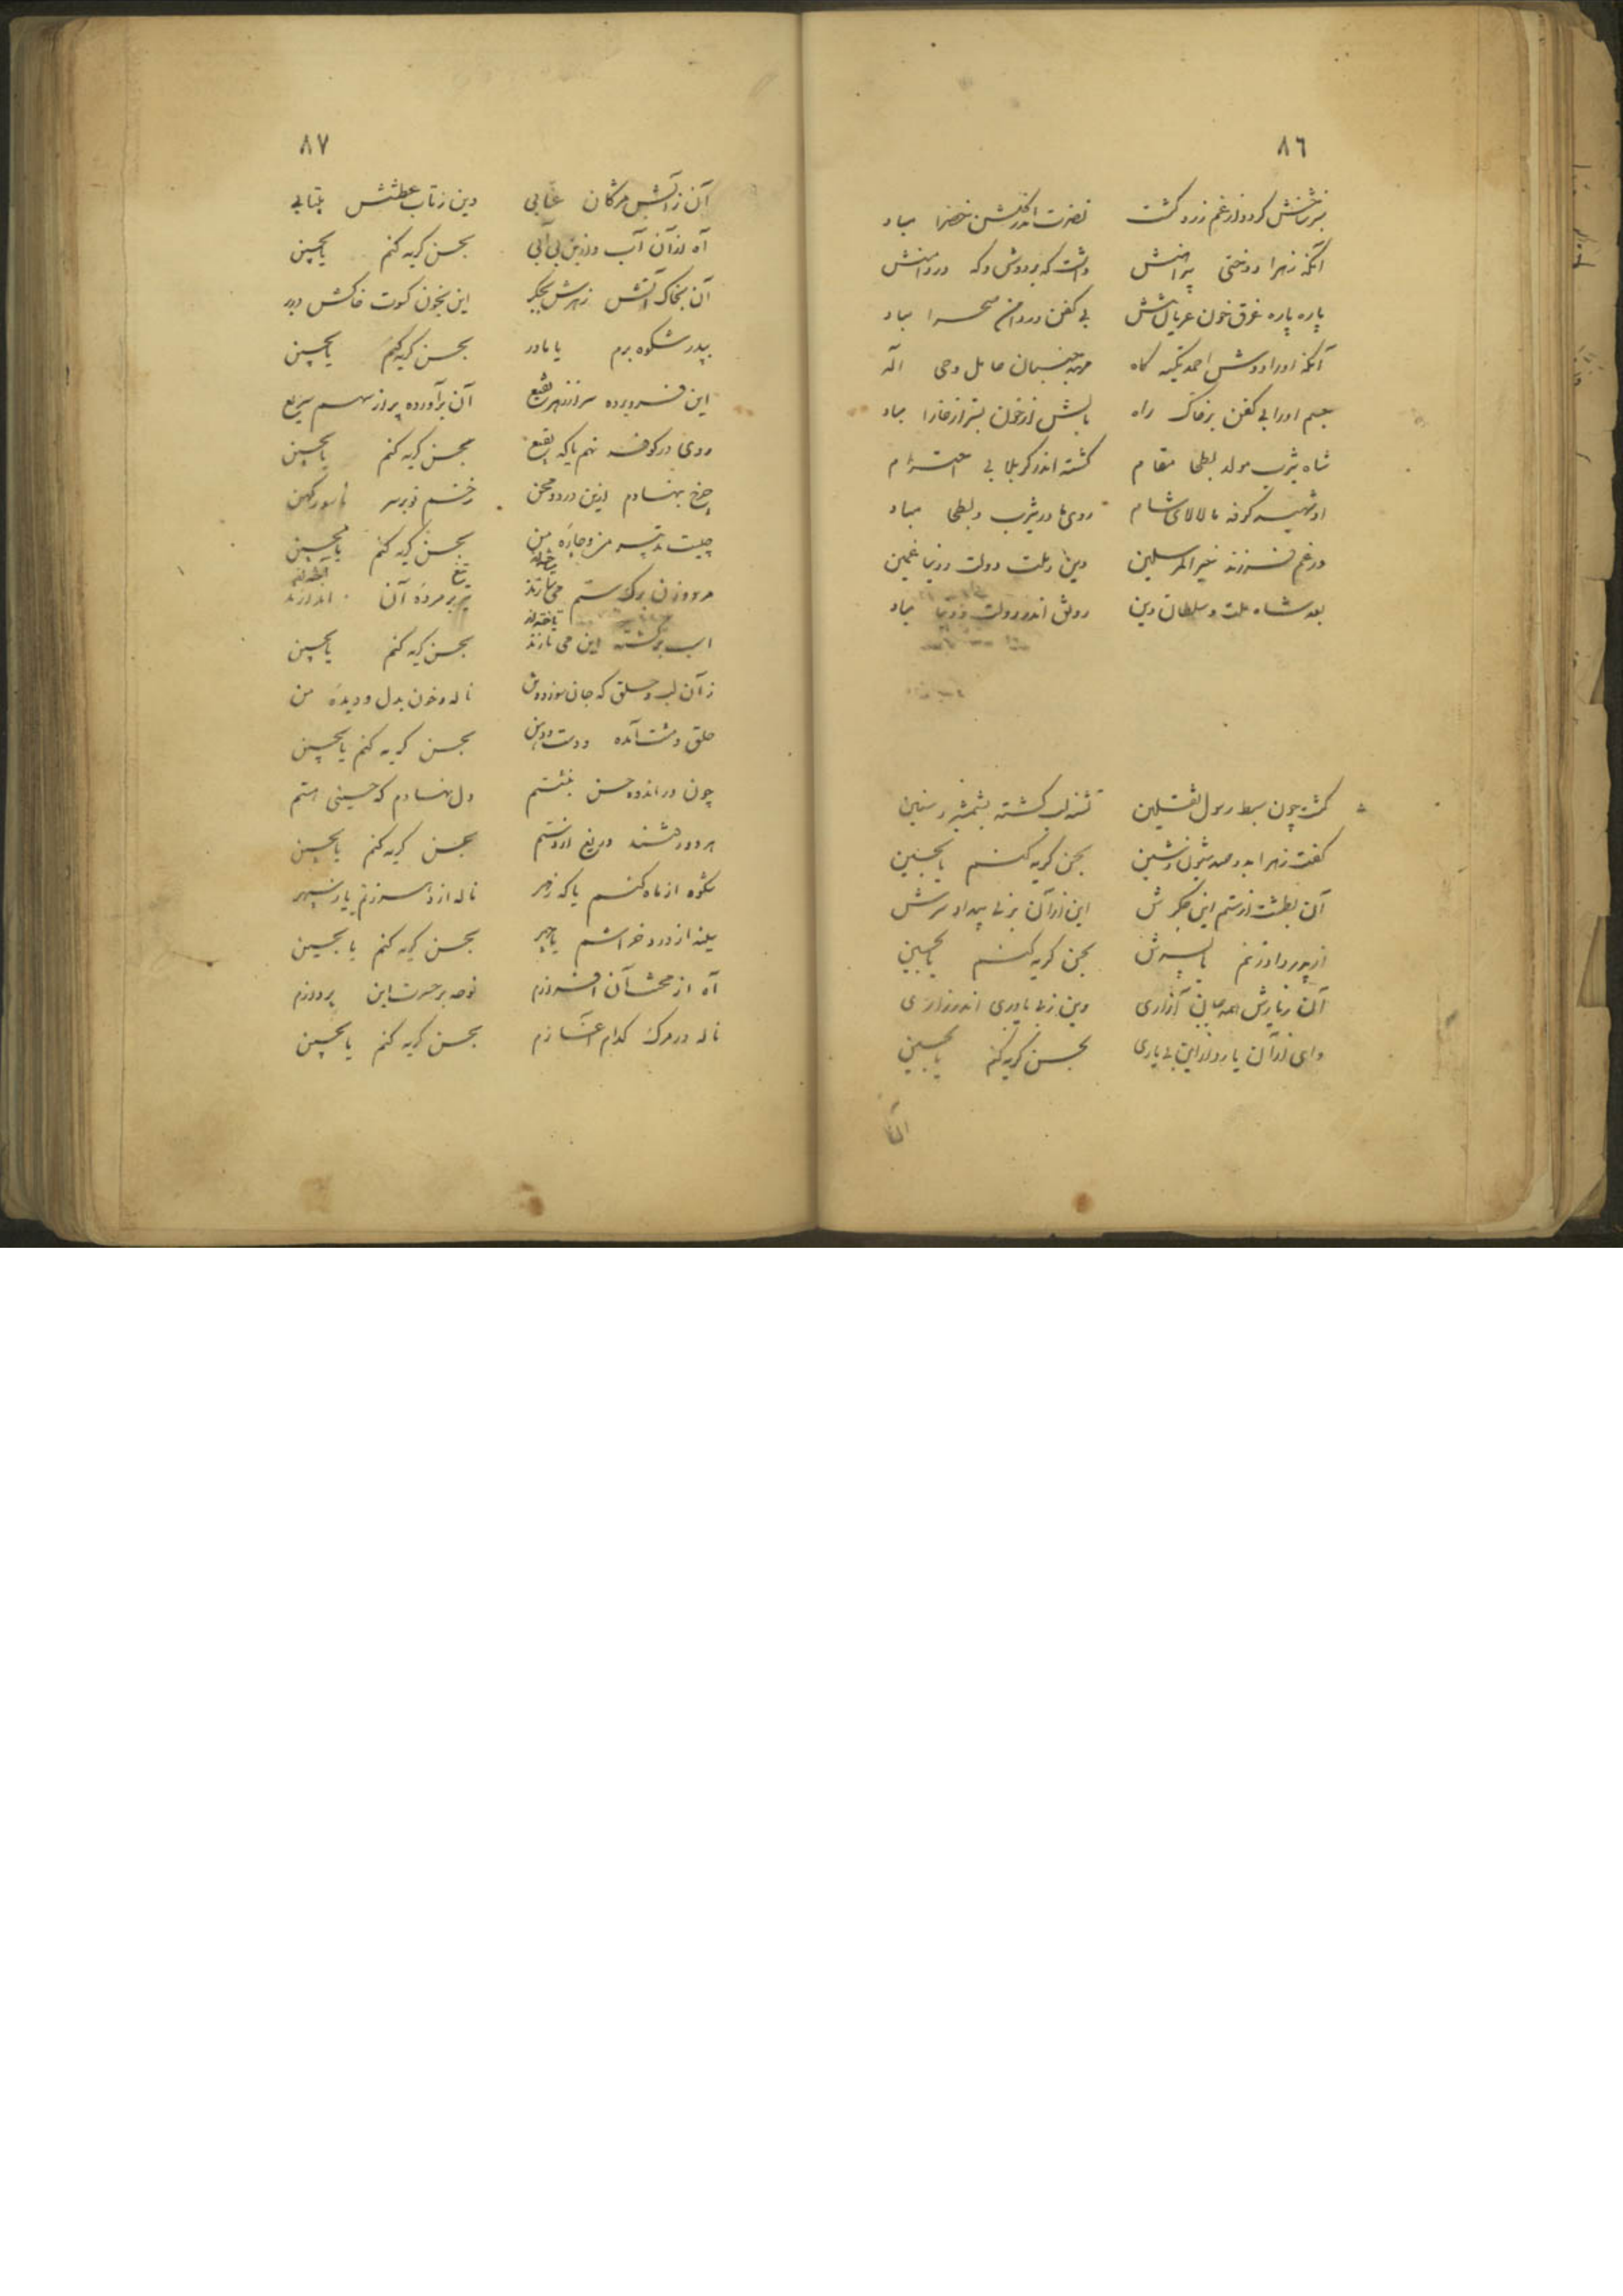 ٨٦
سبز خنش کرد و از غم زرد گشت نضرت اندر گلشن خضرا مباد
آنکه زهرا دوختی پیراهنش داشت که بر دوش و که در دامنش
پاره پاره غرق خون عریان تنش بی کفن در دامن صحرا مباد
آنکه او را دوش احمد تکیه گاه مهد جنبان حامل وحی اله
جسم او را بی کفن بر خاک راه بالش از خون بستر از خارا مباد
شاه یثرب مولد بطحا مقام کشته اندر کربلا بی احترام
او شهید کوفه با لالای شام روی ما در یثرب و بطحا مباد
در غم فرزند خیر المرسلین دین و ملت دولت و دنیا غمین
بعد شاه ملت و سلطان دین رونق اندر دولت و دنیا مباد
گشت چون سبط رسول ثقلین تشنه لب کشته بشمشیر و سنین
گفت زهرا بدو صد شیون و شین بحسن گریه کنم یا بحسین
آن بطشت از ستم این جگرش این از آن بر نی بیداد سرش
از پدر دادزنم یا پسرش بحسن گریه کنم یا بحسین
آن ز یارش همه جانی آزاری وین ز بی یاوری اندر زاری
وای از آن یار و از این بی یاری بحسن گریه کنم یا بحسین
آن
٨٧
آن ز آتش مژگان عنابی وین ز تاب عطشش بیتابی
آه از آن آب و از این بی آبی بحسن گریه کنم یا بحسین
آن بخاک آتش زهرش بجگر این بخون کسوت خاکش در بر
بپدر شکوه برم یا مادر بحسن گریه کنم یا بحسین
این فرو برده سر از زهر نقیع آن برآورده پر از سهم سریع
روی در کوفه نهم یا که بقیع بحسن گریه کنم یا بحسین
چرخ بنهادم ازین درد و محن زخم نو بر سر ناسور کهن
چیست تدبیر من و چاره من بحسن گریه کنم یا بحسین
مرد و زن برگ ستم می سازند تیغ بر مرده آن اندازند
اسب بر کشته این می تازند بحسن گریه کنم یا بحسین
ز آن لب و حلق که جان سوزد و تن ناله و خون بدل و دیده من
حلق و مشت آمده و دست و دهن بحسن گریه کنم یا بحسین
چون در اندوه حسن بنشستم دل نهادم که حسینی هستم
هر دو رفتند دریغ از دستم بحسن گریه کنم یا بحسین
شکوه از ماه کنم یا که ز مهر ناله از دهر زنم یا ز سپهر
سینه از درد خراشم یا چهر بحسن گریه کنم یا بحسین
آه از محنت آن افرازم نوحه بر حسرت این پردازم
ناله در مرگ کدام آغازم بحسن گریه کنم یا بحسین